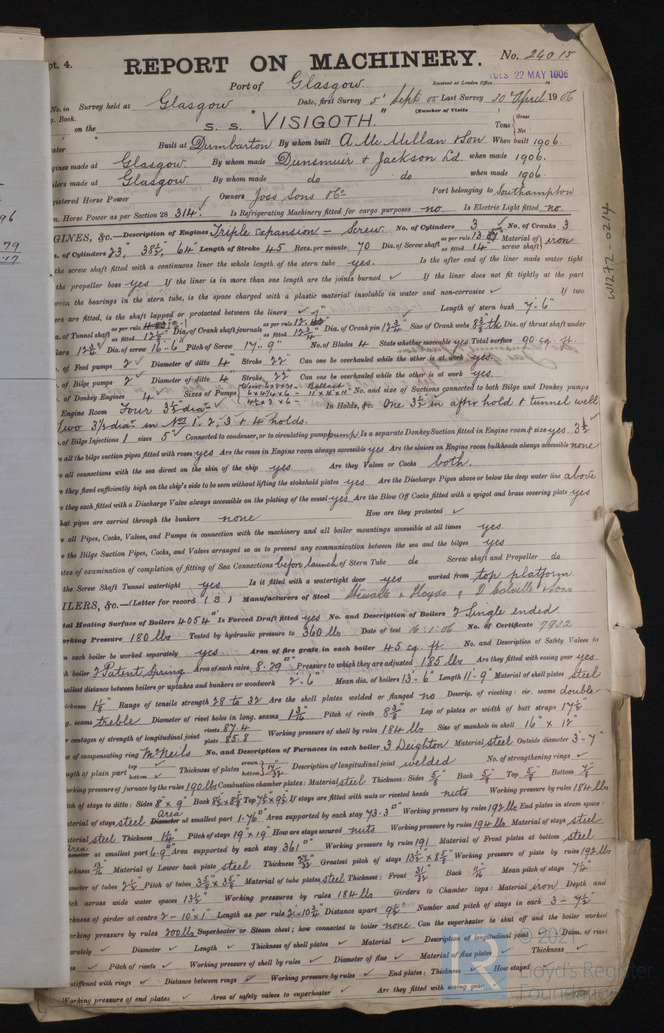 pt. 4.
REPORT ON MACHINERY.
No. 24015
Port of Glasgow
Received at London Office
TUES. 22 MAY 1906
No. in Survey held at Glasgow Date, first Survey 5th Sept 05 Last Survey 20th April 1906
Book. (Number of Visits
on the S.S. "VISIGOTH." Tons Gross Net
Built at Dumbarton By whom built A. McMillan & Son When built 1906.
gines made at Glasgow By whom made Dunsmuir & Jackson Ld. when made 1906.
ilers made at Glasgow By whom made do do when made 1906.
gistered Horse Power Owners Joss Sons & Co Port belonging to Southampton
. Horse Power as per Section 28 314. Is Refrigerating Machinery fitted for cargo purposes no. Is Electric Light fitted no.
GINES, &c.—Description of Engines Triple expansion – Screw No. of Cylinders 3 No. of Cranks 3
. of Cylinders 23", 38½", 64" Length of Stroke 45 Revs. per minute 70 Dia. of Screw shaft as per rule as fitted 14" Material of screw shaft iron
the screw shaft fitted with a continuous liner the whole length of the stern tube yes. Is the after end of the liner made water tight
the propeller boss yes If the liner is in more than one length are the joints burned ✓ If the liner does not fit tightly at the part
ween the bearings in the stern tube, is the space charged with a plastic material insoluble in water and non-corrosive ✓ If two
ers are fitted, is the shaft lapped or protected between the liners ✓ Length of stern bush 4'-6"
. of Tunnel shaft as per rule as fitted 12¼" Dia. of Crank shaft journals as per rule as fitted 12¾ Dia. of Crank pin 12¾" Size of Crank webs Dia. of thrust shaft under
lars 12¾" Dia. of screw 16'-6" Pitch of Screw 17'-9" No. of Blades 4 State whether moveable yes Total surface 90 sq. ft.
. of Feed pumps 2 Diameter of ditto 4" Stroke 22" Can one be overhauled while the other is at work yes.
. of Bilge pumps 2 Diameter of ditto 4" Stroke 22 Can one be overhauled while the other is at work yes.
. of Donkey Engines 4 Sizes of Pumps No. and size of Suctions connected to both Bilge and Donkey pumps
Engine Room Four 3½" dia. In Holds, &c. One 3½ in after hold & tunnel well
two 3½ dia. in Nos 1, 2, 3 & 4 holds.
. of Bilge Injections 1 sizes 5" Connected to condenser, or to circulating pump pump Is a separate Donkey Suction fitted in Engine room & size yes 3½
e all the bilge suction pipes fitted with roses yes Are the roses in Engine room always accessible yes Are the sluices on Engine room bulkheads always accessible none
e all connections with the sea direct on the skin of the ship yes Are they Valves or Cocks both.
e they fixed sufficiently high on the ship's side to be seen without lifting the stokehold plates yes Are the Discharge Pipes above or below the deep water line above
e they each fitted with a Discharge Valve always accessible on the plating of the vessel yes Are the Blow Off Cocks fitted with a spigot and brass covering plate yes
hat pipes are carried through the bunkers none How are they protected ✓
e all Pipes, Cocks, Valves, and Pumps in connection with the machinery and all boiler mountings accessible at all times yes
e the Bilge Suction Pipes, Cocks, and Valves arranged so as to prevent any communication between the sea and the bilges yes
ates of examination of completion of fitting of Sea Connections before launch of Stern Tube do Screw shaft and Propeller do
the Screw Shaft Tunnel watertight yes Is it fitted with a watertight door yes worked from top platform
ILERS, &c.—(Letter for record (S) Manufacturers of Steel Stewarts & Lloyds & D. Colville & Sons
tal Heating Surface of Boilers 4054" Is Forced Draft fitted yes No. and Description of Boilers 2 Single ended
orking Pressure 180 lbs Tested by hydraulic pressure to 360 lbs Date of test 16.1.06 No. of Certificate 7932
n each boiler be worked separately yes Area of fire grate in each boiler 45 sq. ft. No. and Description of Safety Valves to
h boiler 2 Patent Spring Area of each valve 8.29" Pressure to which they are adjusted 185 lbs Are they fitted with easing gear yes
mallest distance between boilers or uptakes and bunkers or woodwork 2'-6" Mean dia. of boilers 13'-6" Length 11'-9" Material of shell plates steel
ickness 1⅛" Range of tensile strength 28 to 32 Are the shell plates welded or flanged no Descrip. of riveting: cir. seams double
g. seams treble Diameter of rivet holes in long. seams 1 3/16 Pitch of rivets 8⅜" Lap of plates or width of butt straps 17½"
r centages of strength of longitudinal joint rivets 87.4 plate 85.8 Working pressure of shell by rules 184 lbs Size of manhole in shell 16" x 12"
e of compensating ring McNeils No. and Description of Furnaces in each boiler 3 Deighton Material steel Outside diameter 3'-7"
ngth of plain part top bottom Thickness of plates crown bottom Description of longitudinal joint welded No. of strengthening rings ✓
orking pressure of furnace by the rules 190 lbs Combustion chamber plates: Material steel Thickness: Sides ⅝" Back ⅝" Top ⅝" Bottom
tch of stays to ditto: Sides 8" x 9" Back 8½ x 8½ Top 7½ x 9½ If stays are fitted with nuts or riveted heads nuts Working pressure by rules 184 lbs
aterial of stays steel Area Diameter at smallest part 1.76" Area supported by each stay 73.3" Working pressure by rules 192 lbs End plates in steam space:
aterial steel Thickness 1¼" Pitch of stays 19" x 19" How are stays secured nuts Working pressure by rules 194 lbs Material of stays steel
Area ameter at smallest part 6.9" Area supported by each stay 361" Working pressure by rules 191 Material of Front plates at bottom steel
ickness Material of Lower back plate steel Thickness Greatest pitch of stays 13½ x 8½ Working pressure of plate by rules 192 lbs
ameter of tubes 2½" Pitch of tubes 3⅝ x 3⅝ Material of tube plates steel Thickness: Front Back Mean pitch of stays
tch across wide water spaces 13½" Working pressures by rules 184 lbs Girders to Chamber tops: Material iron Depth and
ckness of girder at centre Length as per rule Distance apart 9½" Number and pitch of stays in each 3 – 7½"
orking pressure by rules 200 lbs Superheater or Steam chest; how connected to boiler none Can the superheater be shut off and the boiler worked
parately ✓ Diameter ✓ Length ✓ Thickness of shell plates ✓ Material ✓ Description of longitudinal joint Diam. of rivet
✓ Pitch of rivets ✓ Working pressure of shell by rules ✓ Diameter of flue ✓ Material of flue plates Thickness ✓
stiffened with rings ✓ Distance between rings ✓ Working pressure by rules ✓ End plates: Thickness ✓ How stayed
Working pressure of end plates ✓ Area of safety valves to superheater ✓ Are they fitted with easing gear
W1272-0214
© 2021
Lloyd's Register
Foundation